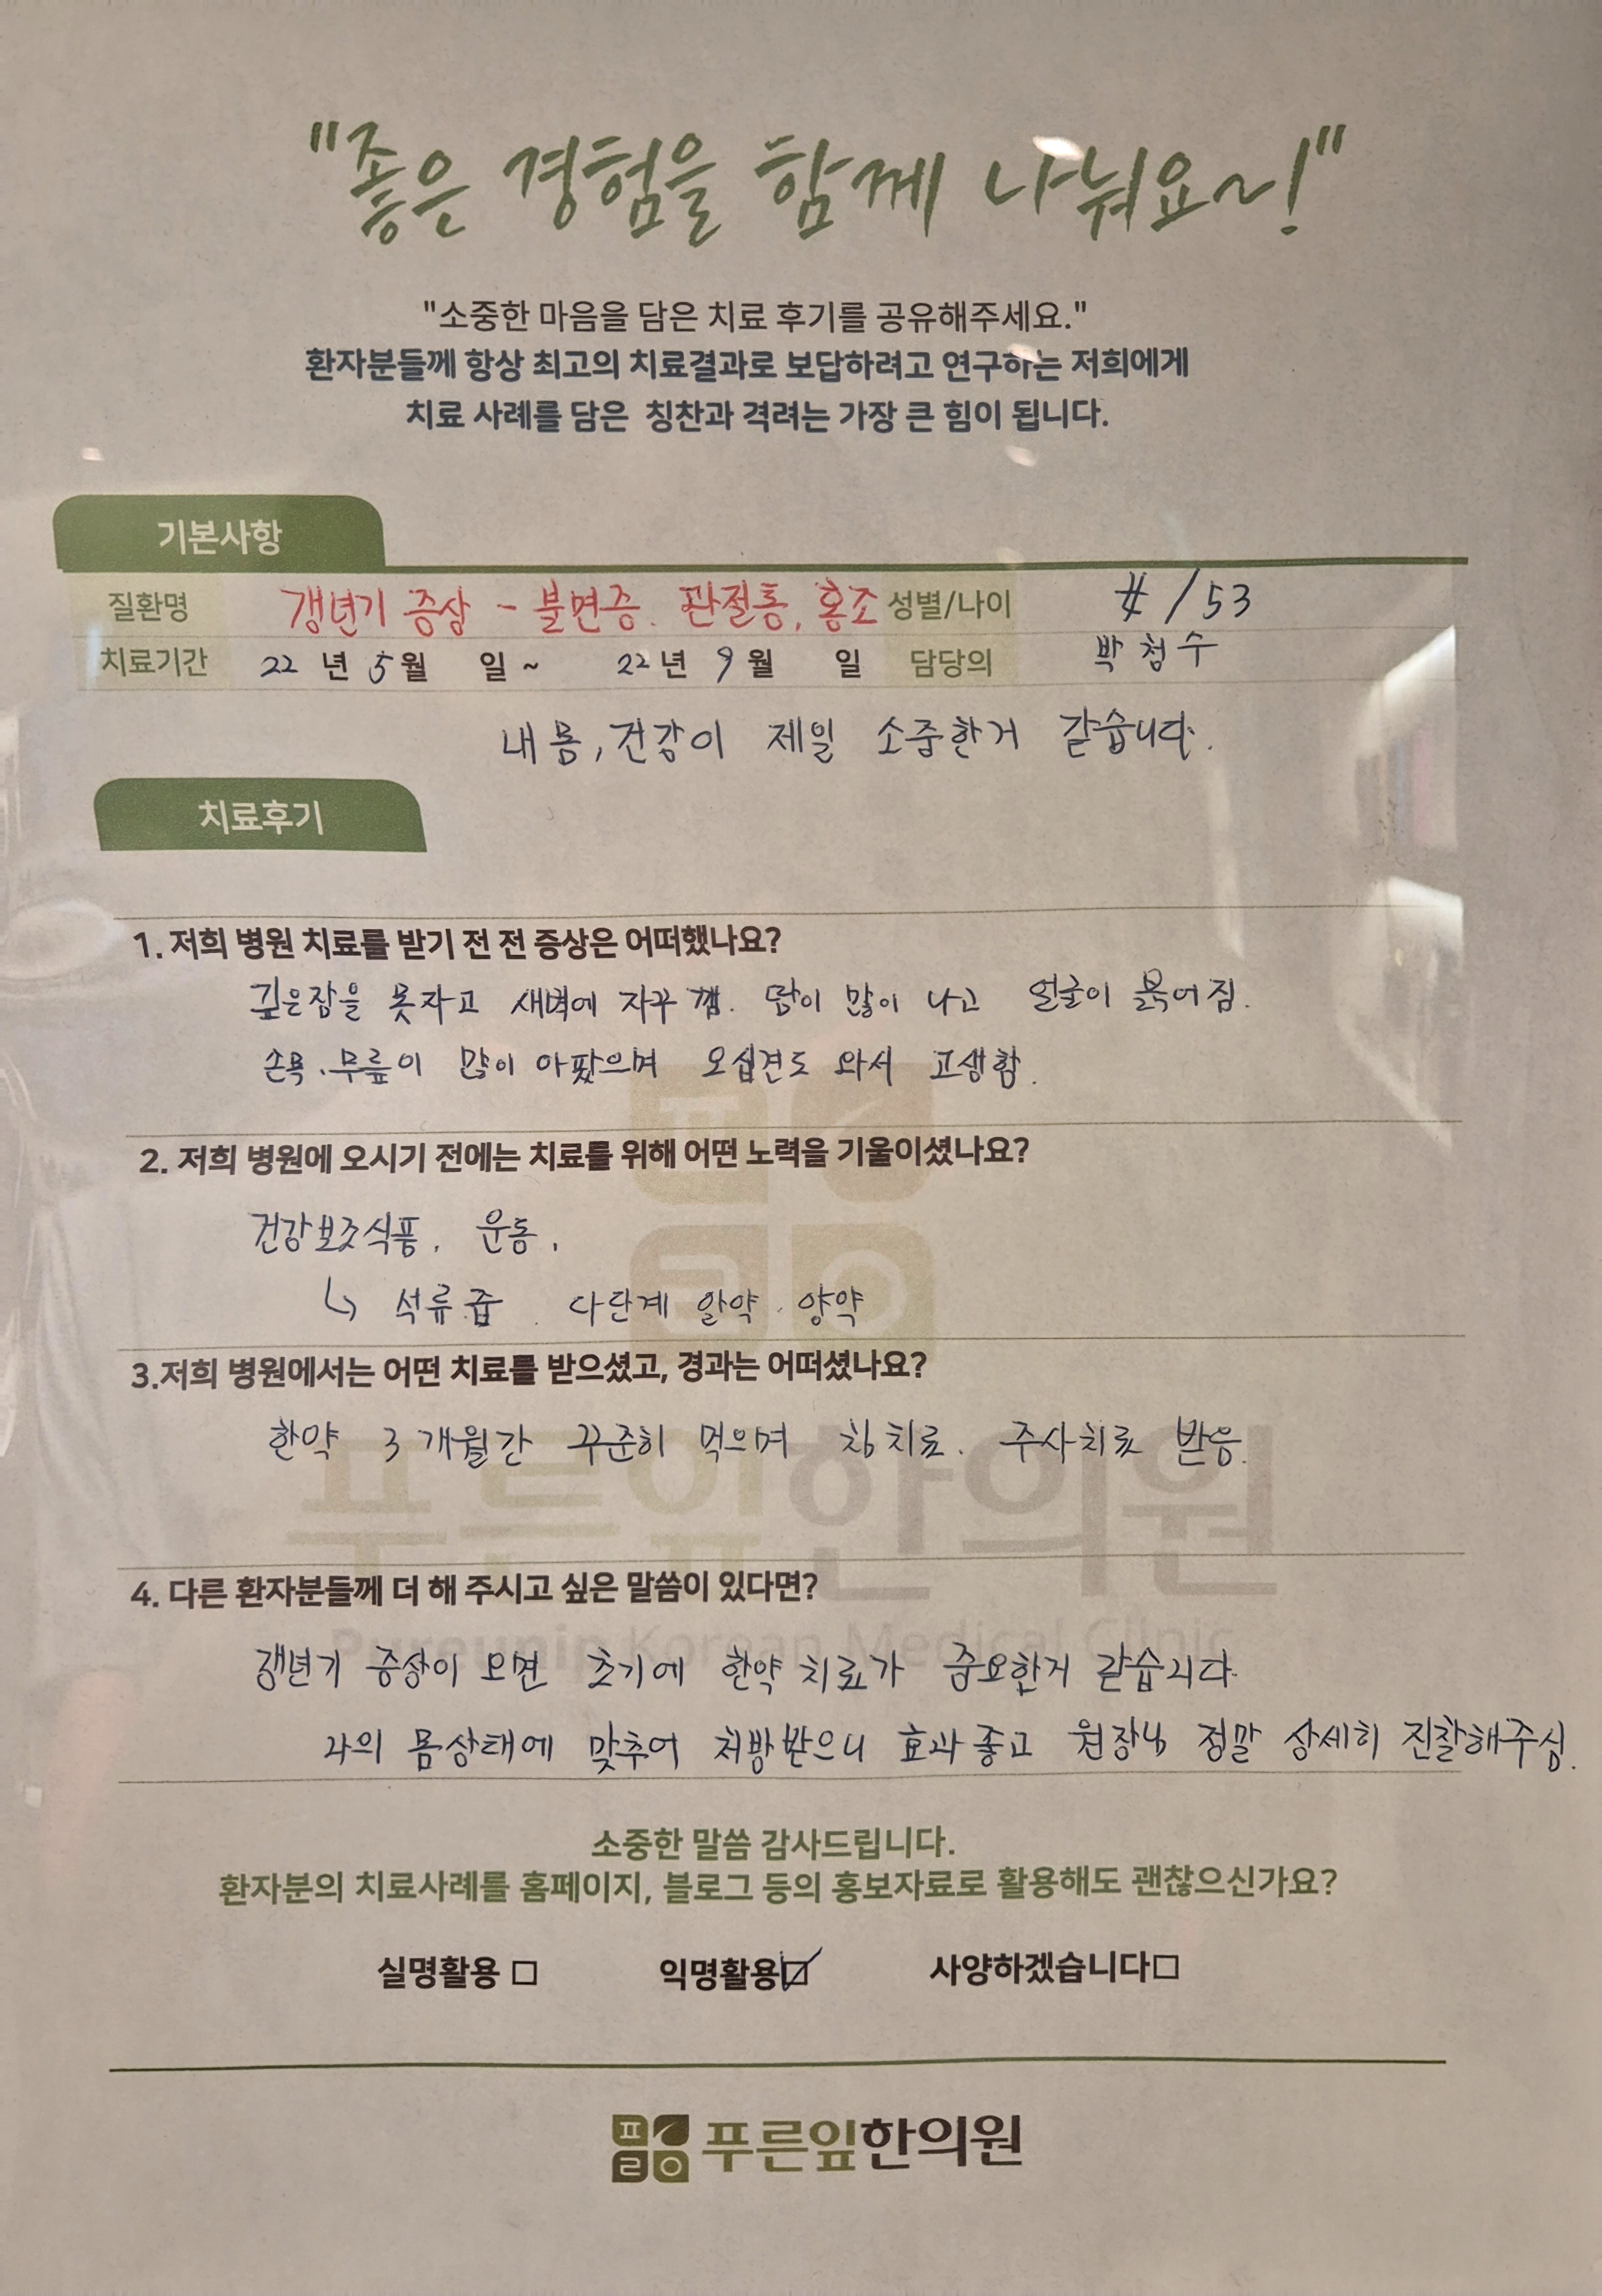 "좋은 경험을 함께 나눠요~!"
"소중한 마음을 담은 치료 후기를 공유해주세요."
환자분들께 항상 최고의 치료결과로 보답하려고 연구하는 저희에게
치료 사례를 담은 칭찬과 격려는 가장 큰 힘이 됩니다.
기본사항
질환명 갱년기 증상 - 불면증. 관절통, 홍조 성별/나이 女/53
치료기간 22년 5월 일 ~ 22년 9월 일 담당의 박첨수
내 몸, 건강이 제일 소중한거 같습니다.
치료후기
1. 저희 병원 치료를 받기 전 전 증상은 어떠했나요?
깊은잠을 못자고 새벽에 자꾸 깸. 땀이 많이 나고 얼굴이 붉어짐.
손목. 무릎이 많이 아팠으며 오십견도 와서 고생함.
2. 저희 병원에 오시기 전에는 치료를 위해 어떤 노력을 기울이셨나요?
건강보조식품, 운동,
↳ 석류즙. 다단계 알약. 양약
3.저희 병원에서는 어떤 치료를 받으셨고, 경과는 어떠셨나요?
한약 3개월간 꾸준히 먹으며 침치료. 주사치료 받음.
푸른잎한의원
Pureunip Korean Medical Clinic
4. 다른 환자분들께 더 해 주시고 싶은 말씀이 있다면?
갱년기 증상이 오면 초기에 한약 치료가 중요한거 같습니다
나의 몸상태에 맞추어 처방받으니 효과좋고 원장님 정말 상세히 진찰해주심.
소중한 말씀 감사드립니다.
환자분의 치료사례를 홈페이지, 블로그 등의 홍보자료로 활용해도 괜찮으신가요?
실명활용 □ 익명활용 ☑ 사양하겠습니다 □
푸른잎한의원